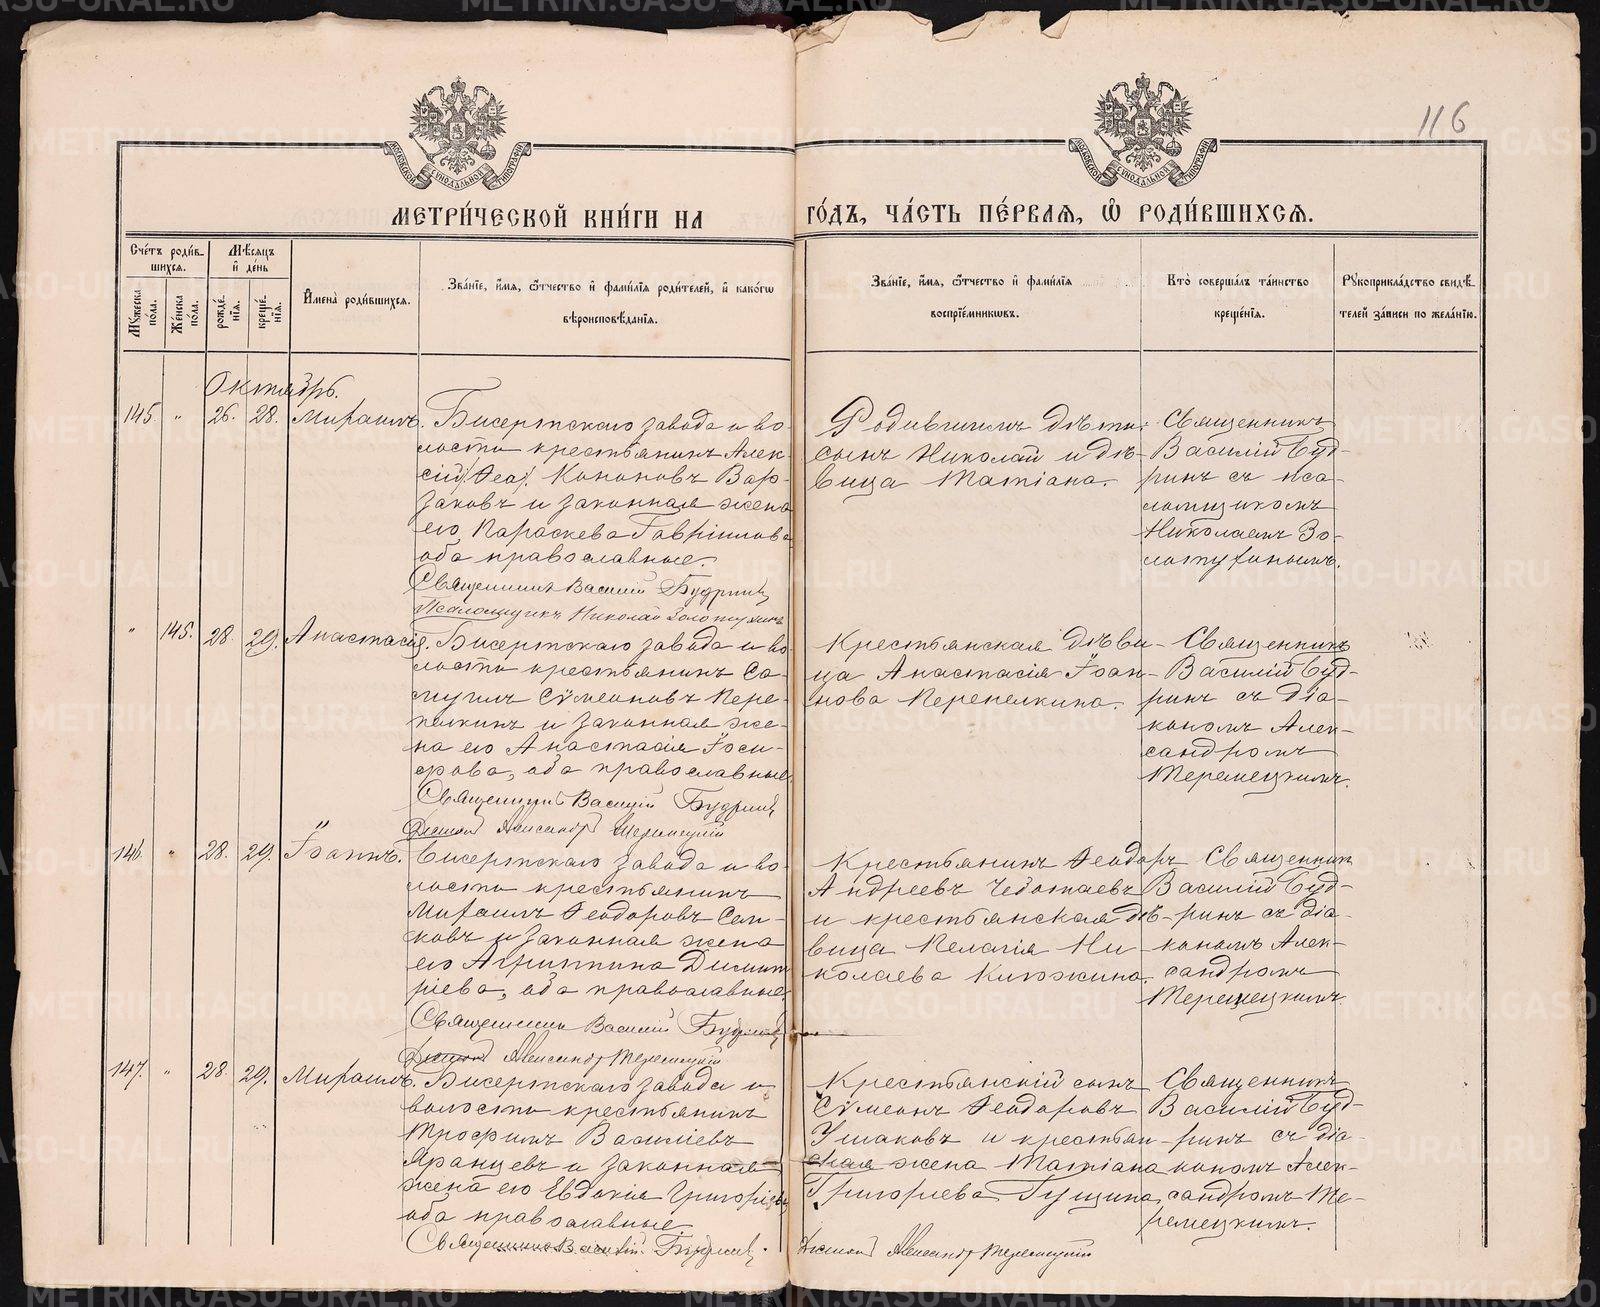 116
МОСКОВСКОЙ СУНОДАЛЬНОЙ ТИПОГРАФІИ
МОСКОВСКОЙ СУНОДАЛЬНОЙ ТИПОГРАФІИ
МЕТРИ́ЧЕСКОЙ КНИ́ГИ НА
ГО́ДЪ, ЧА́СТЬ ПЕ́РВАЯ, Ѽ РОДИ́ВШИХСЯ.
Сче́тъ роди́в-
шихся.
Мѣ́сяцъ
и҆ де́нь
Му́жеска по́ла.
Же́нска по́ла.
рожде́-
нїя.
креще́-
нїя.
И҆мена̀ роди́вшихся.
Зва́нїе, и҆́мя, ѻ҆́тчество и҆ фами́лїя роди́телей, и҆ како́гѡ
вѣроисповѣ́данїя.
Зва́нїе, и҆́мя, ѻ҆́тчество и҆ фами́лїя
воспрїе́мникѡвъ.
Кто̀ соверша́лъ та́инство
креще́нїя.
Рꙋкоприкла́дство свидѣ́-
телей за́писи по жела́нїю.
Октябрь.
145. " 26. 28. Михаилъ.
Бисертскаго завода и во-
лости крестьянинъ Алек-
сій (Ѳеод.) Кононовъ Вар-
заковъ и законная жена
его Параскева Гавріилова
оба православные.
Священникъ Василій Будринъ
Псаломщикъ Николай Золотухинъ
Родившихъ дѣти:
сынъ Николай и дѣ-
вица Татіана.
Священникъ
Василій Буд-
ринъ съ пса-
ломщикомъ
Николаемъ Зо-
лотухинымъ.
" 145. 28. 29. Анастасія.
Бисертскаго завода и во-
лости крестьянинъ Са-
муилъ Сѵмеоновъ Пере-
пелкинъ и законная же-
на его Анастасія Іоси-
фова, оба православные
Священникъ Василій Будринъ
Діаконъ Александръ Теремецкій
Крестьянская дѣви-
ца Анастасія Іоан-
нова Перепелкина.
Священникъ
Василій Буд-
ринъ съ діа-
кономъ Алек-
сандромъ
Теремецкимъ.
146. " 28. 29. Іоаннъ.
Бисертскаго завода и во-
лости крестьянинъ
Михаилъ Ѳеодоровъ Сем-
ковъ и законная жена
его Агриппина Димит-
ріева, оба православные
Священникъ Василій Будринъ
Діаконъ Александръ Теремецкій
Крестьянинъ Ѳеодоръ
Андреевъ Чеботаевъ
и крестьянская дѣ-
вица Пелагія Ни-
колаева Клюжина.
Священникъ
Василій Буд-
ринъ съ діа-
кономъ Алек-
сандромъ
Теремецкимъ.
147. " 28. 29. Михаилъ.
Бисертскаго завода и
волости крестьянинъ
Трофимъ Василіевъ
Яранцевъ и законная
жена его Евдокія Григоріева
оба православные.
Священникъ Василій Будринъ.
Діаконъ Александръ Теремецкій
Крестьянскій сынъ
Сѵмеонъ Ѳеодоровъ
Ушаковъ и крестьян-
ская жена Татіана
Григоріева Гущина.
Священникъ
Василій Буд-
ринъ съ діа-
кономъ Алек-
сандромъ Те-
ремецкимъ.
METRIKI.GASO-URAL.RU